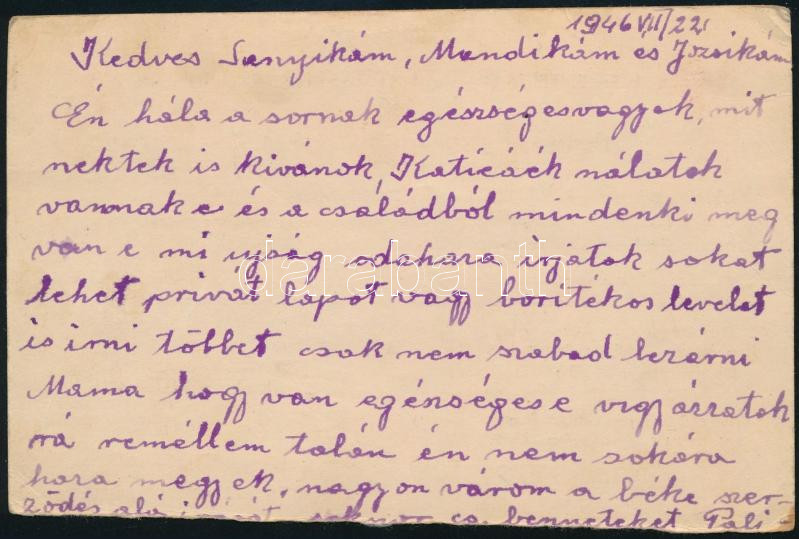 1946 VII/22
Kedves Sanyikám, Mundikám es Jozsikám
Én hála a sornak egészségesvagyok, mit
nektek is kivánok, Katicáék nálatok
vannak e és a családból mindenki meg
van e mi ujság odahara irjatok sokat
lehet privát lapot vagy boritékos levelet
is irni többet csak nem szabad lezárni
Mama hogy van egészségese vigjázzatok
rá reméllem talán én nem sokára
hara megyek, nagyon várom a béke szer-
ződés alá benneteket Pali
darabanth